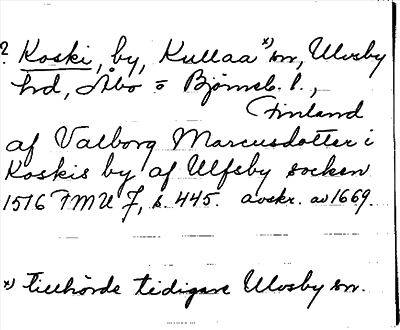 ? Koski, by, Kullaa *) sn, Ulvsby
hd, Åbo o Björneb. l.,
Finland
af Valborg Marcusdotter i
Koskis by af Ulfsby socken
1516 FMU 7, s. 445. avskr. av 1669.
*) Tillhörde tidigare Ulvsby sn.